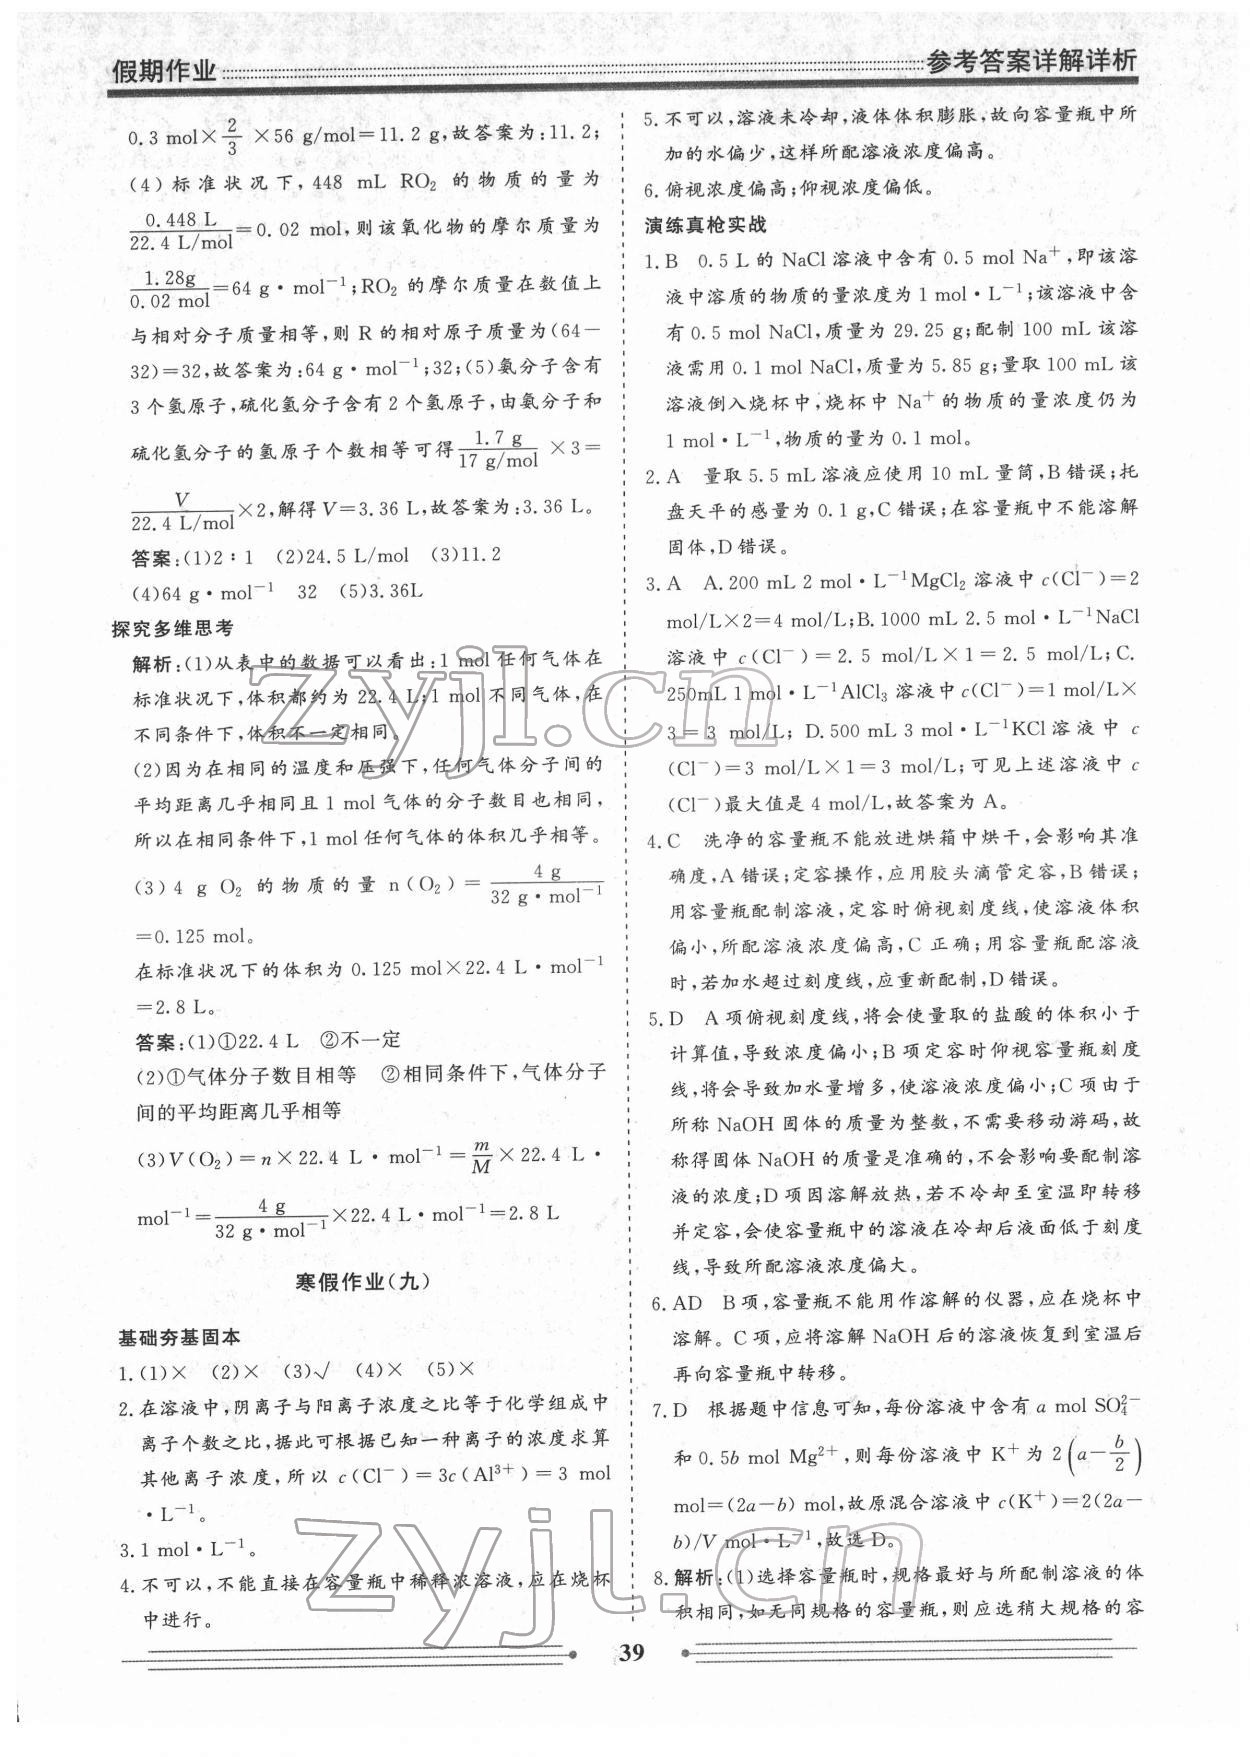 假期作业
参考答案详解详析
0.3 mol×2/3×56 g/mol=11.2 g,故答案为:11.2;
(4)标准状况下,448 mL RO₂ 的物质的量为
0.448 L/22.4 L/mol=0.02 mol,则该氧化物的摩尔质量为
1.28g/0.02 mol=64 g·mol⁻¹;RO₂ 的摩尔质量在数值上
与相对分子质量相等,则 R 的相对原子质量为(64-
32)=32,故答案为:64 g·mol⁻¹;32;(5)氨分子含有
3 个氢原子,硫化氢分子含有 2 个氢原子,由氨分子和
硫化氢分子的氢原子个数相等可得1.7 g/17 g/mol×3=
V/22.4 L/mol×2,解得V=3.36 L,故答案为:3.36 L。
答案:(1)2∶1 (2)24.5 L/mol (3)11.2
(4)64 g·mol⁻¹ 32 (5)3.36L
探究多维思考
解析:(1)从表中的数据可以看出:1 mol 任何气体在
标准状况下,体积都约为 22.4 L;1 mol 不同气体,在
不同条件下,体积不一定相同。
(2)因为在相同的温度和压强下,任何气体分子间的
平均距离几乎相同且 1 mol 气体的分子数目也相同,
所以在相同条件下,1 mol 任何气体的体积几乎相等。
(3)4 g O₂ 的物质的量 n(O₂)=4 g/32 g·mol⁻¹
=0.125 mol。
在标准状况下的体积为 0.125 mol×22.4 L·mol⁻¹
=2.8 L。
答案:(1)①22.4 L ②不一定
(2)①气体分子数目相等 ②相同条件下,气体分子
间的平均距离几乎相等
(3)V(O₂)=n×22.4 L·mol⁻¹=m/M×22.4 L·
mol⁻¹=4 g/32 g·mol⁻¹×22.4 L·mol⁻¹=2.8 L
寒假作业(九)
基础夯基固本
1.(1)× (2)× (3)√ (4)× (5)×
2.在溶液中,阴离子与阳离子浓度之比等于化学组成中
离子个数之比,据此可根据已知一种离子的浓度求算
其他离子浓度,所以 c(Cl⁻)=3c(Al³⁺)=3 mol
·L⁻¹。
3.1 mol·L⁻¹。
4.不可以,不能直接在容量瓶中稀释浓溶液,应在烧杯
中进行。
5.不可以,溶液未冷却,液体体积膨胀,故向容量瓶中所
加的水偏少,这样所配溶液浓度偏高。
6.俯视浓度偏高;仰视浓度偏低。
演练真枪实战
1.B 0.5 L 的 NaCl 溶液中含有 0.5 mol Na⁺,即该溶
液中溶质的物质的量浓度为 1 mol·L⁻¹;该溶液中含
有 0.5 mol NaCl,质量为 29.25 g;配制 100 mL 该溶
液需用 0.1 mol NaCl,质量为 5.85 g;量取 100 mL 该
溶液倒入烧杯中,烧杯中 Na⁺ 的物质的量浓度仍为
1 mol·L⁻¹,物质的量为 0.1 mol。
2.A 量取 5.5 mL 溶液应使用 10 mL 量筒,B 错误;托
盘天平的感量为 0.1 g,C 错误;在容量瓶中不能溶解
固体,D 错误。
3.A A.200 mL 2 mol·L⁻¹MgCl₂ 溶液中 c(Cl⁻)=2
mol/L×2=4 mol/L;B.1000 mL 2.5 mol·L⁻¹NaCl
溶液中 c(Cl⁻)=2.5 mol/L×1=2.5 mol/L;C.
250mL 1 mol·L⁻¹AlCl₃ 溶液中 c(Cl⁻)=1 mol/L×
3=3 mol/L;D.500 mL 3 mol·L⁻¹KCl 溶液中 c
(Cl⁻)=3 mol/L×1=3 mol/L;可见上述溶液中 c
(Cl⁻)最大值是 4 mol/L,故答案为 A。
4.C 洗净的容量瓶不能放进烘箱中烘干,会影响其准
确度,A 错误;定容操作,应用胶头滴管定容,B 错误;
用容量瓶配制溶液,定容时俯视刻度线,使溶液体积
偏小,所配溶液浓度偏高,C 正确;用容量瓶配溶液
时,若加水超过刻度线,应重新配制,D 错误。
5.D A 项俯视刻度线,将会使量取的盐酸的体积小于
计算值,导致浓度偏小;B 项定容时仰视容量瓶刻度
线,将会导致加水量增多,使溶液浓度偏小;C 项由于
所称 NaOH 固体的质量为整数,不需要移动游码,故
称得固体 NaOH 的质量是准确的,不会影响要配制溶
液的浓度;D 项因溶解放热,若不冷却至室温即转移
并定容,会使容量瓶中的溶液在冷却后液面低于刻度
线,导致所配溶液浓度偏大。
6.AD B 项,容量瓶不能用作溶解的仪器,应在烧杯中
溶解。C 项,应将溶解 NaOH 后的溶液恢复到室温后
再向容量瓶中转移。
7.D 根据题中信息可知,每份溶液中含有 a mol SO₄²⁻
和 0.5b mol Mg²⁺,则每份溶液中 K⁺ 为 2(a-b/2)
mol=(2a-b) mol,故原混合溶液中 c(K⁺)=2(2a-
b)/V mol·L⁻¹,故选 D。
8.解析:(1)选择容量瓶时,规格最好与所配制溶液的体
积相同,如无同规格的容量瓶,则应选稍大规格的容
39
zyjl.cn
zyjl.cn